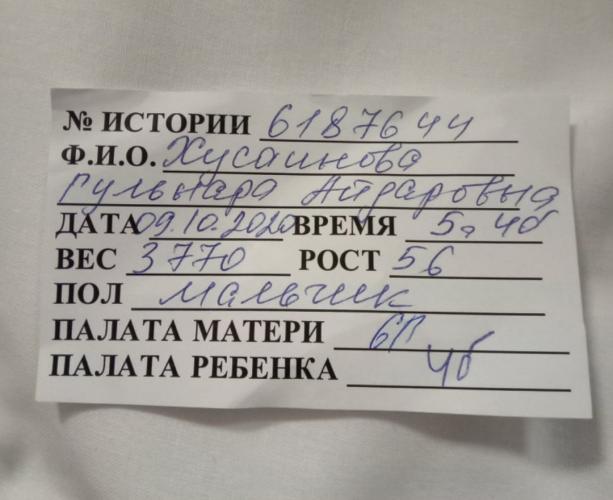 № ИСТОРИИ 6187644
Ф.И.О. Хусаинова
Гульнара Айдаровна
ДАТА 09.10.2020 ВРЕМЯ
ВЕС 3770 РОСТ 56
ПОЛ мальчик
ПАЛАТА МАТЕРИ 6П
ПАЛАТА РЕБЕНКА 4б